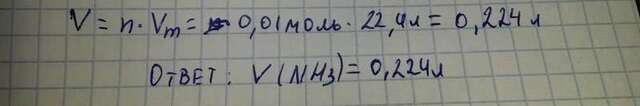 V = n · Vm = 0,01 моль · 22,4л = 0,224 л
Ответ: V(NH3) = 0,224л